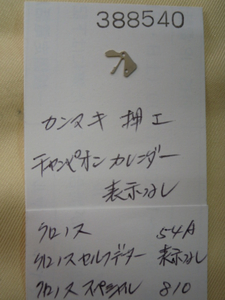 388540
カンヌキ押エ
チャンピオンカレンダー
表示なし
クロノス 54A
クロノスセルフデーター 表示なし
クロノススペシャル 810